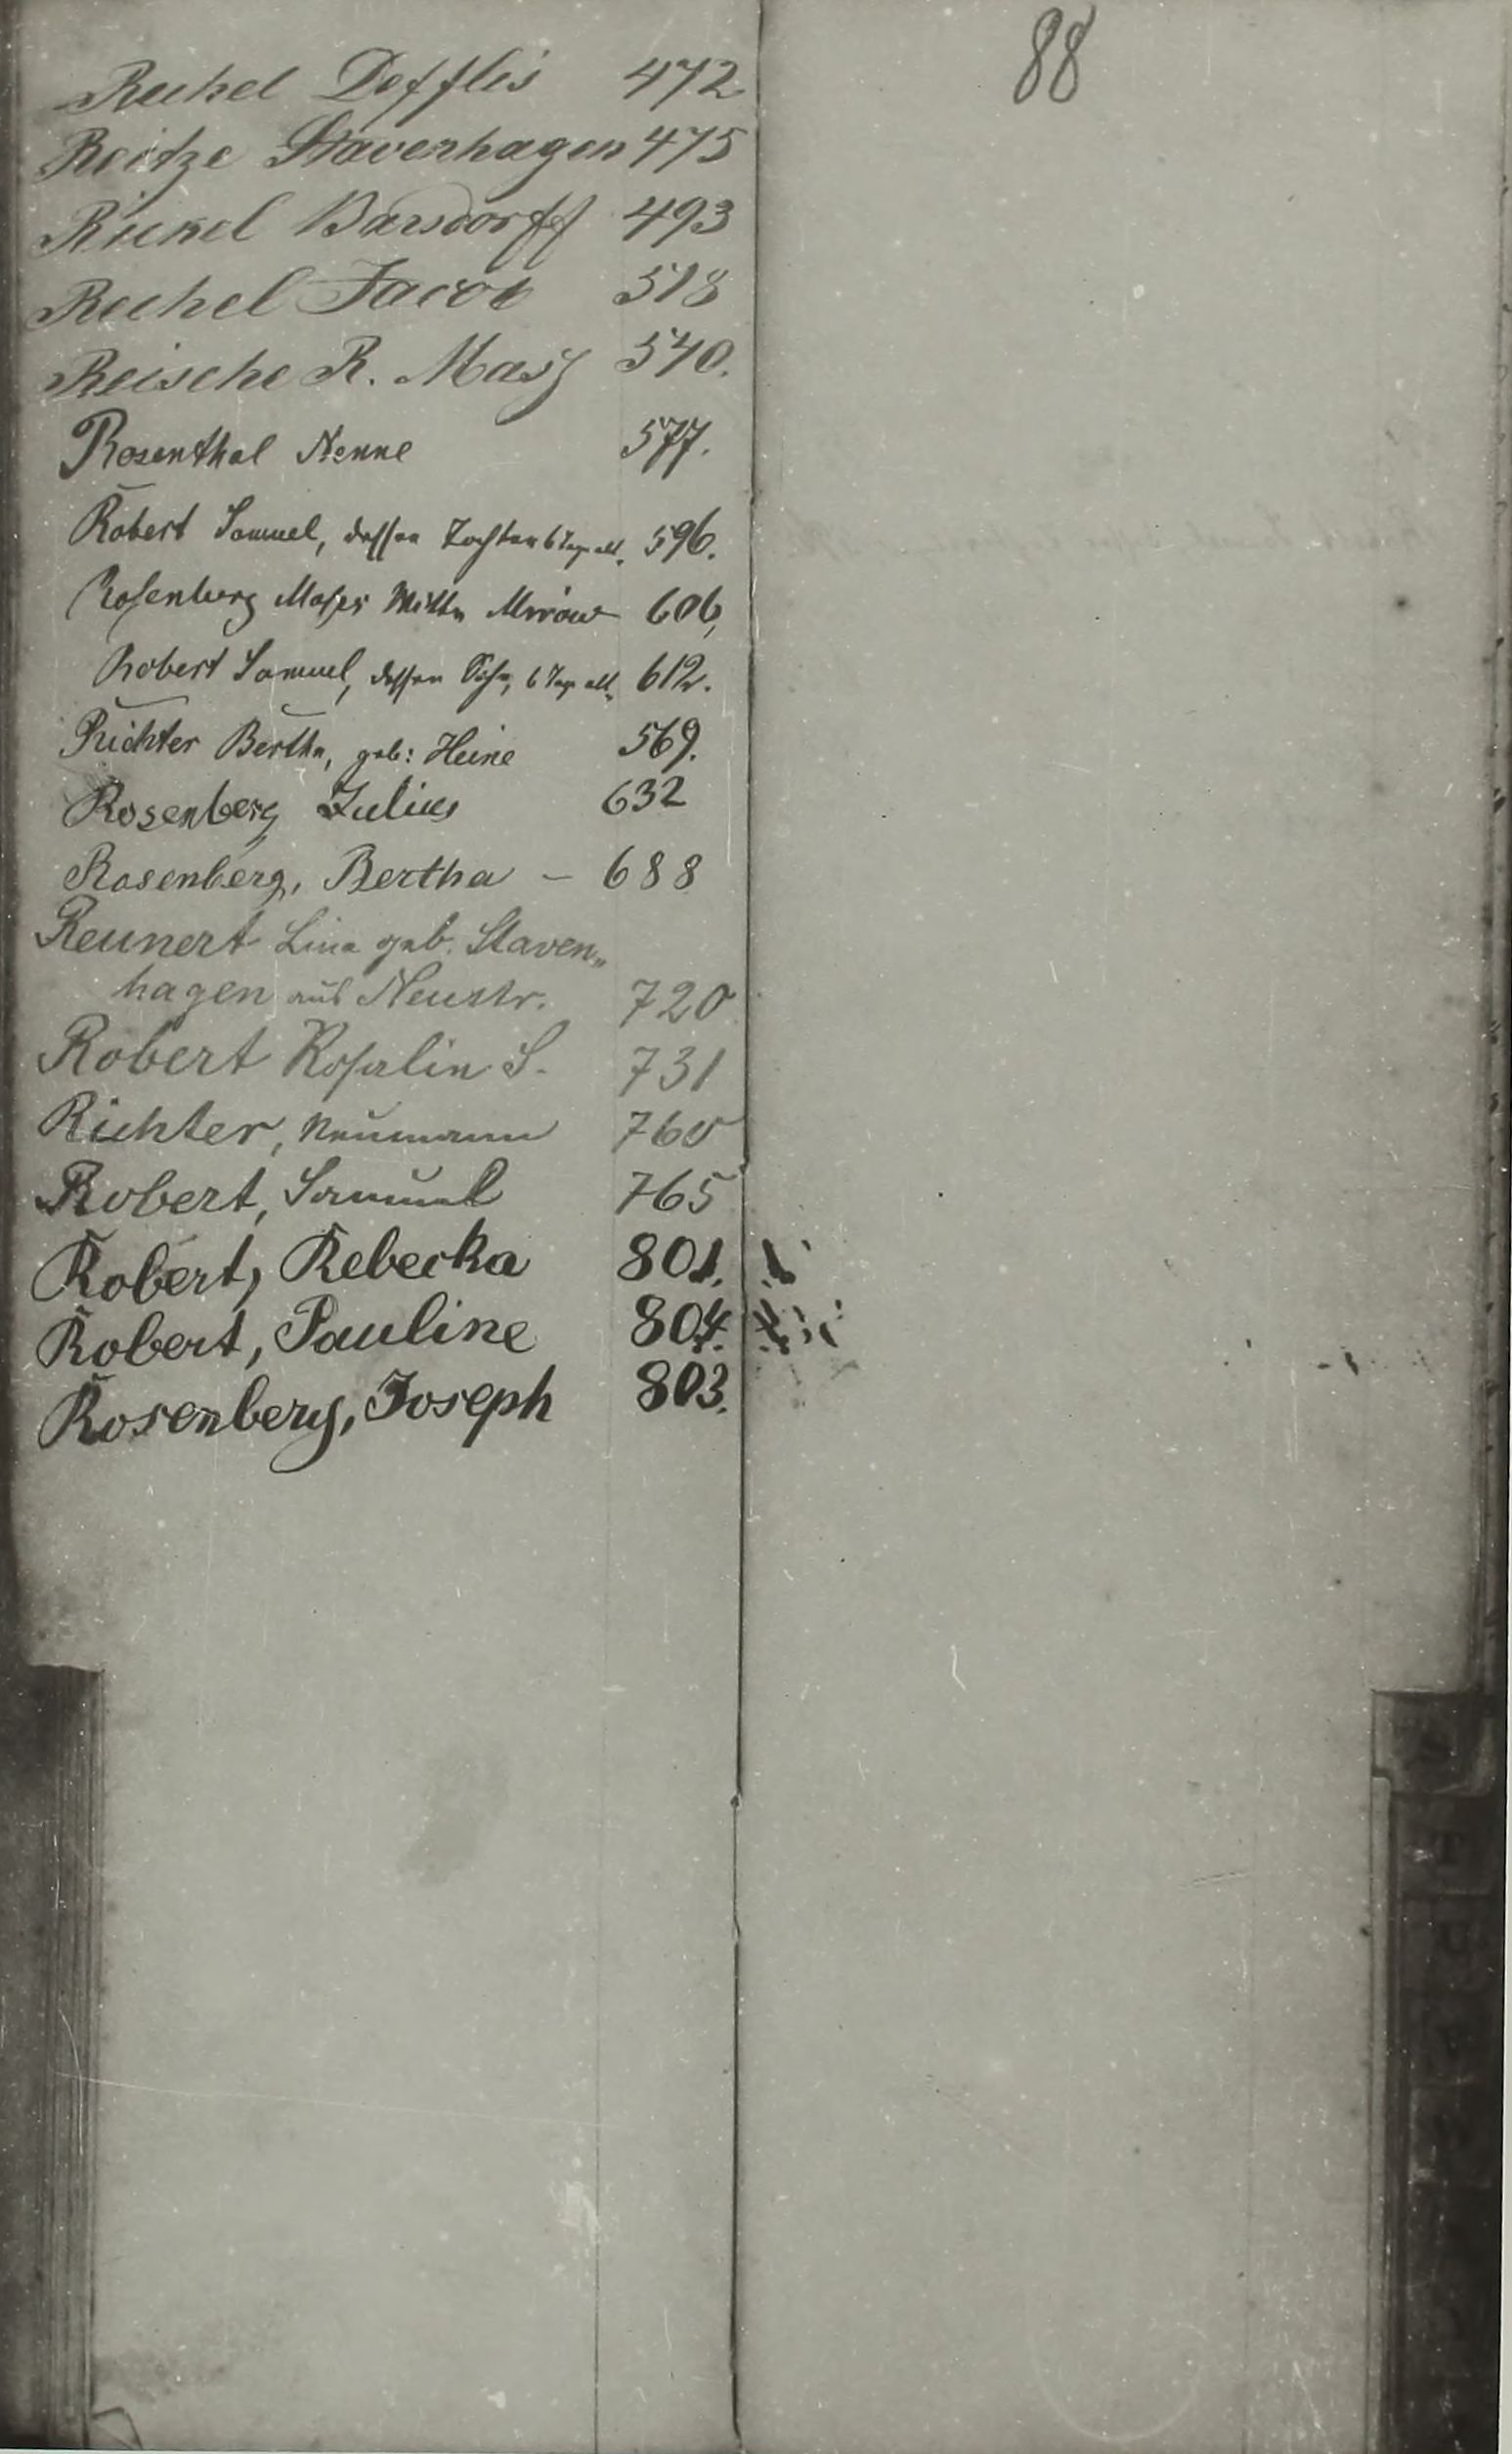 Rechel Defflis 472
Reitze Stavenhagen 475
Rickel Barsdorff 493
Rechel Jacob 518
Reische R. 540.
Rosenthal Nenne 577.
Robert Samuel, dessen Tochter 6 Tage alt. 596.
Rosenberg Moses Mirow 606,
Robert Samuel, dessen Sohn, 6 Tage alt. 612.
Richter Bertha, geb: Heine 569.
Rosenberg Julius 632
Rosenberg, Bertha – 688
Reunert Lina geb. Staven„
hagen aus Neustr. 720
Robert Rosalin S. 731
Richter, Naumann 760
Robert, Samuel 765
Robert, Rebecka 801.
Robert, Pauline 804.
Rosenberg, Joseph 803.
88
S
T
U